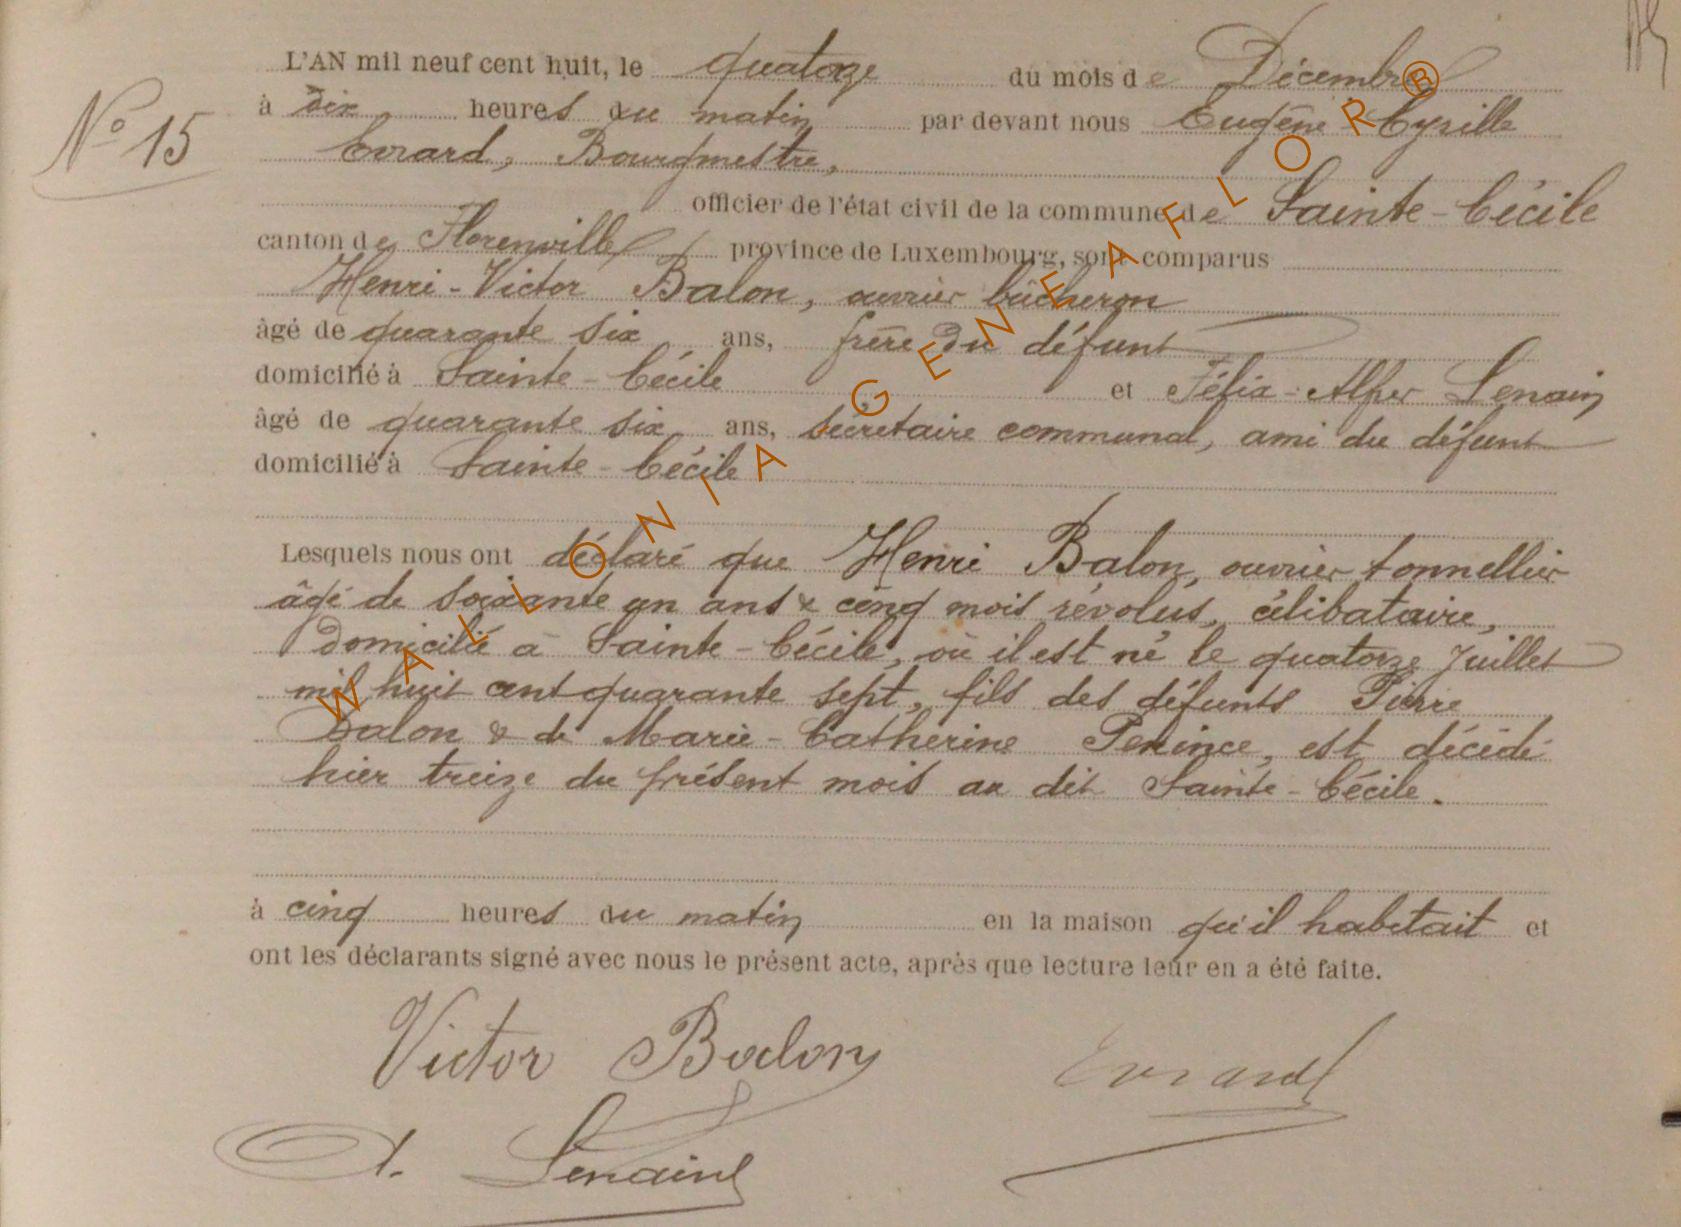 L'AN mil neuf cent huit, le quatorze du mois de Décembre
N° 15
à dix heures du matin par devant nous Eugène Cyrille
Evrard, Bourgmestre,
officier de l'état civil de la commune de Sainte-Cécile
canton de Florenville province de Luxembourg, sont comparus
Henri-Victor Balon, ouvrier bûcheron
âgé de quarante six ans, frère du défunt
domicilié à Sainte-Cécile et Félix-Alfer Lenain
âgé de quarante six ans, secrétaire communal, ami du défunt
domicilié à Sainte-Cécile
Lesquels nous ont déclaré que Henri Balon, ouvrier tonnellier
âgé de soixante un ans & cinq mois révolus, célibataire,
domicilié à Sainte-Cécile, où il est né le quatorze Juillet
mil huit cent quarante sept, fils des défunts Pierre
Balon & de Marie-Catherine Perince, est décédé
hier treize du présent mois au dit Sainte-Cécile.
à cinq heures du matin en la maison qu'il habitait et
ont les déclarants signé avec nous le présent acte, après que lecture leur en a été faite.
Victor Balon Evrard
A. Lenain
WALLONIA GENEAFLOR®